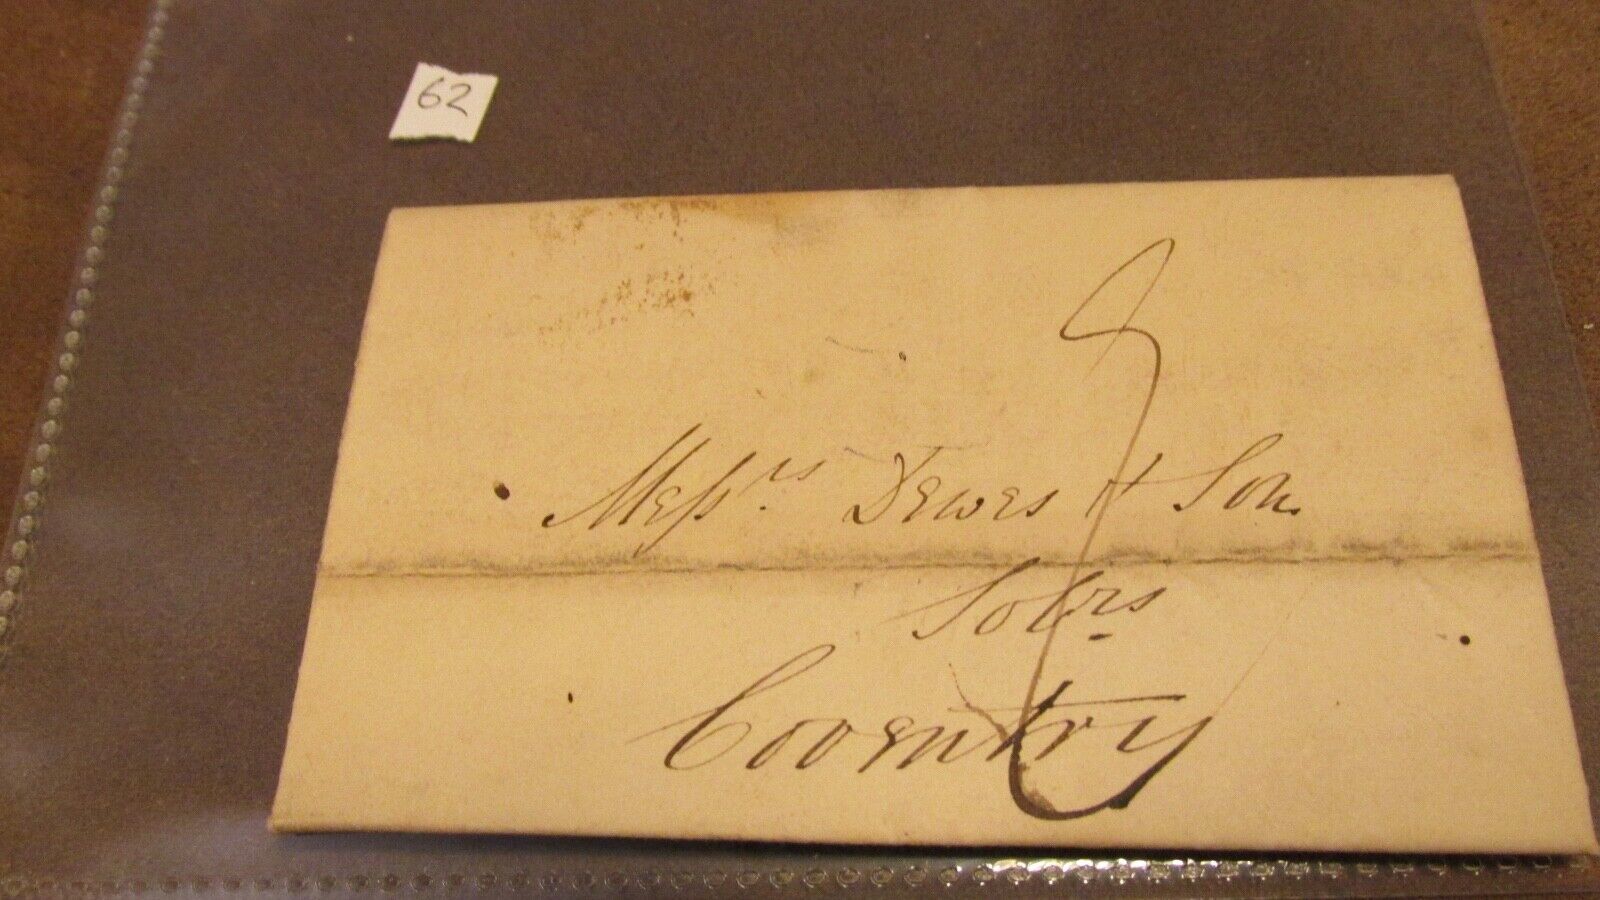 62
Messrs Dewes & Son
Solrs
Coventry